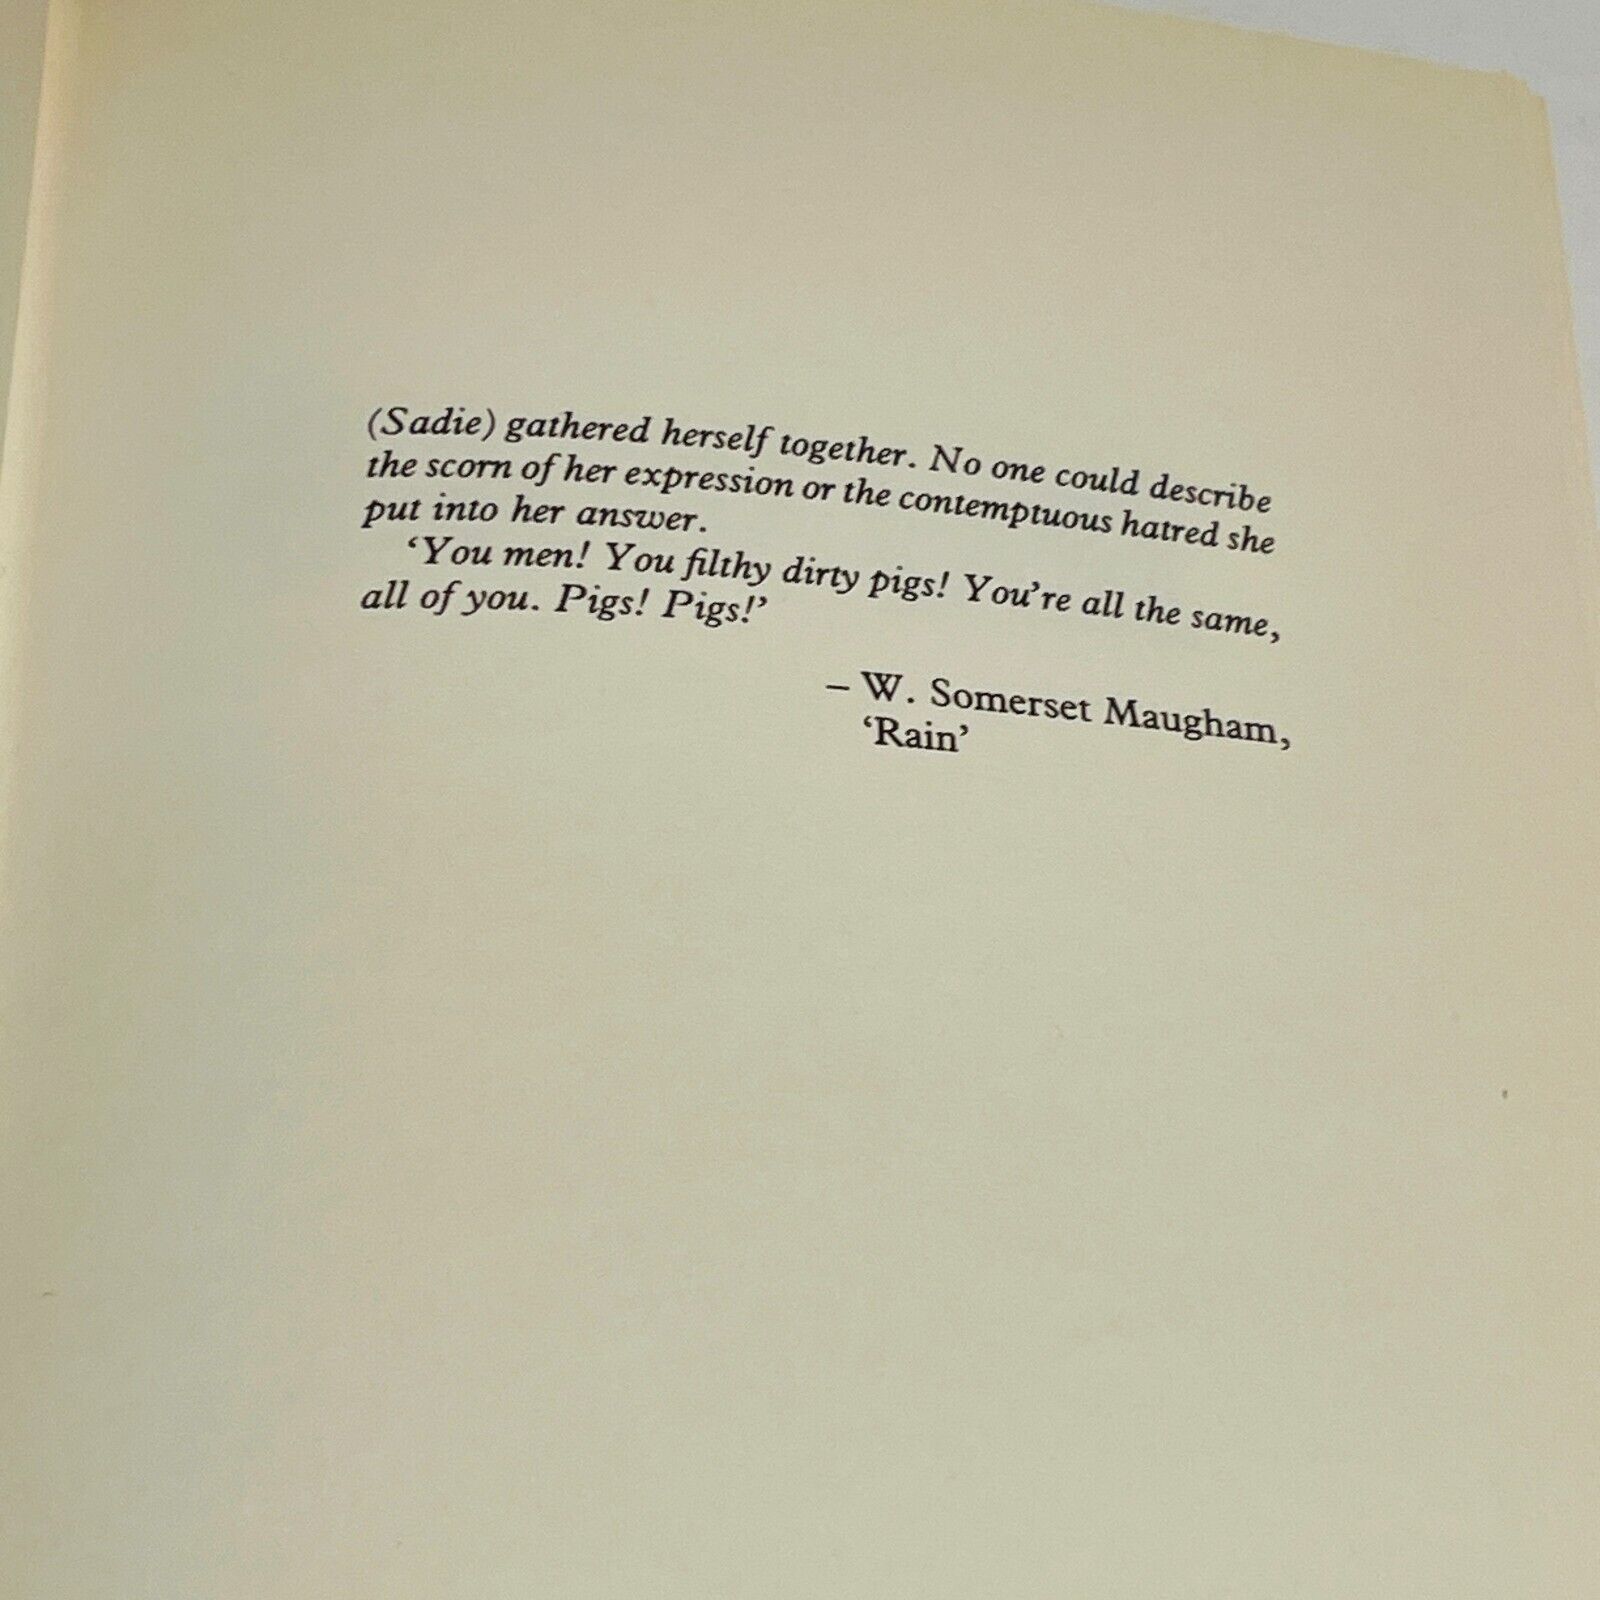 (Sadie) gathered herself together. No one could describe
the scorn of her expression or the contemptuous hatred she
put into her answer.
‘You men! You filthy dirty pigs! You’re all the same,
all of you. Pigs! Pigs!’
– W. Somerset Maugham,
‘Rain’